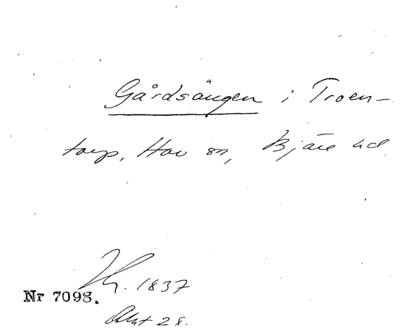 Gårdsängen i Troen-
torp, Hov sn, Bjäre hd
Nr 7098. 1837
28.